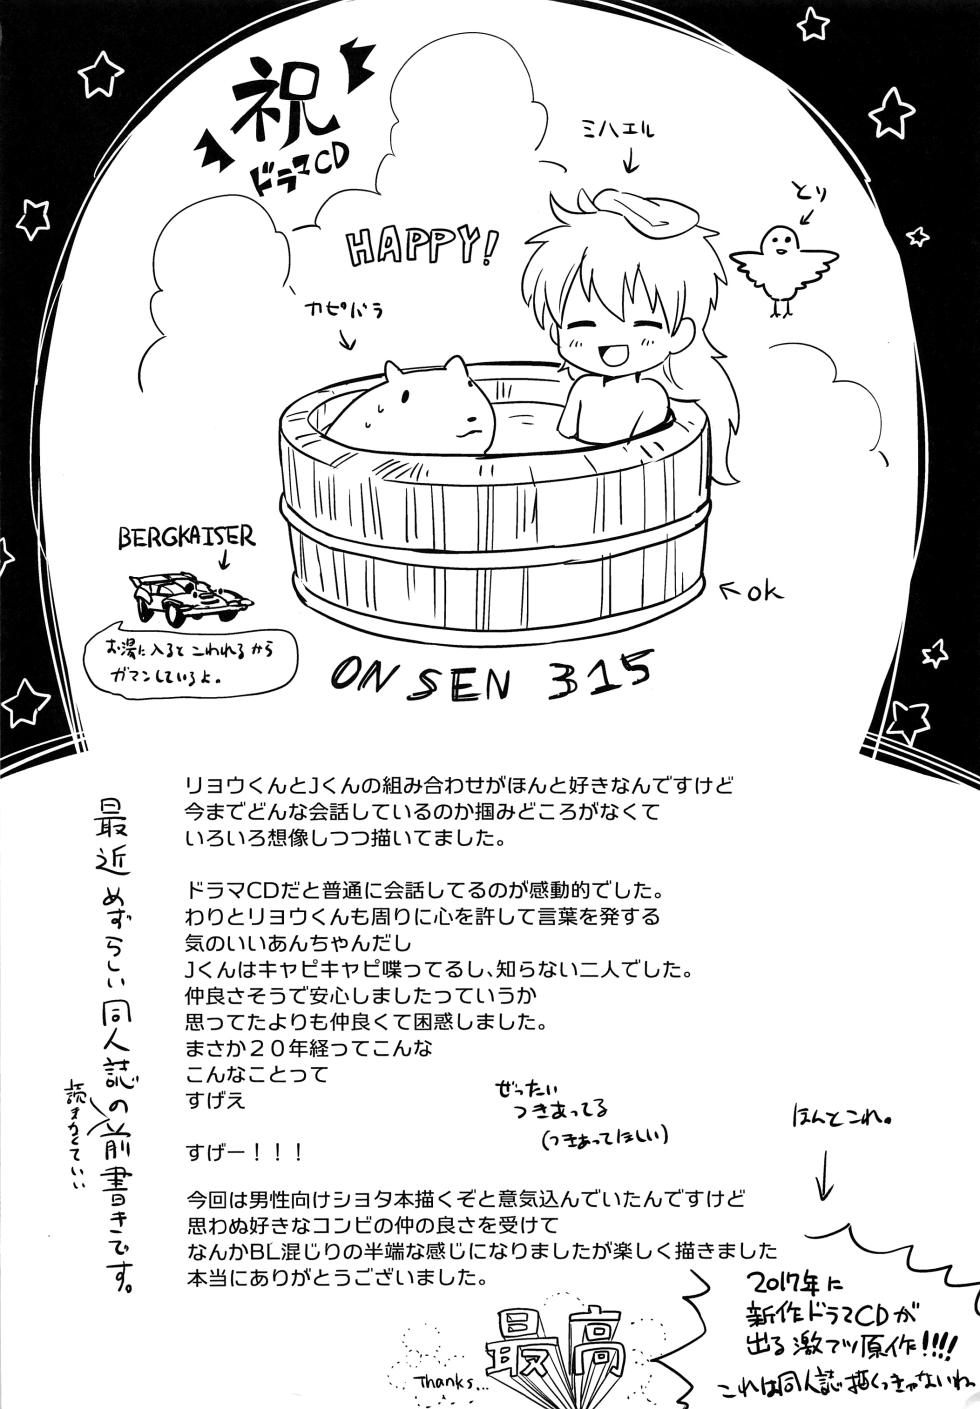 祝
ドラマCD
HAPPY!
ミハエル
とり
カピバラ
BERGKAISER
お湯に入るとこわれるから
ガマンしているよ。
←OK
ONSEN 315
最近めずらしい同人誌の前書きです。
読まなくていい
リョウくんとJくんの組み合わせがほんと好きなんですけど
今までどんな会話しているのか掴みどころがなくて
いろいろ想像しつつ描いてました。
ドラマCDだと普通に会話してるのが感動的でした。
わりとリョウくんも周りに心を許して言葉を発する
気のいいあんちゃんだし
Jくんはキャピキャピ喋ってるし、知らない二人でした。
仲良さそうで安心しましたっていうか
思ってたよりも仲良くて困惑しました。
まさか20年経ってこんな
こんなことって
すげえ
すげー！！！
ぜったい
つきあってる
(つきあってほしい)
今回は男性向けショタ本描くぞと意気込んでいたんですけど
思わぬ好きなコンビの仲の良さを受けて
なんかBL混じりの半端な感じになりましたが楽しく描きました
本当にありがとうございました。
ほんとこれ。
2017年に
新作ドラマCDが
出る激アツ原作!!!!
これは同人誌描くっきゃないわ
最高
Thanks...